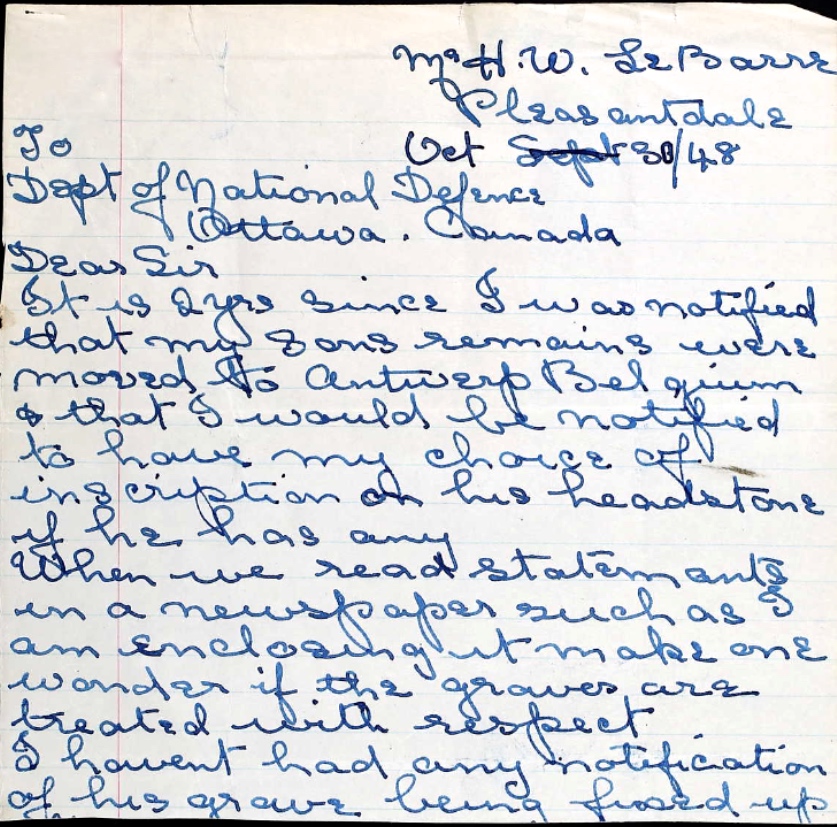 Mrs H. W. LeBarre
Pleasantdale
To
Oct Sept 30/48
Dept of National Defence
Ottawa. Canada
Dear Sir
It is 2 yrs since I was notified
that my sons remains were
moved to Antwerp Belgium
& that I would be notified
to have my choice of
inscription on his headstone
if he has any
When we read statemants
in a newspaper such as I
am enclosing it make one
wonder if the graves are
treated with respect
I havent had any notification
of his grave being fixed up